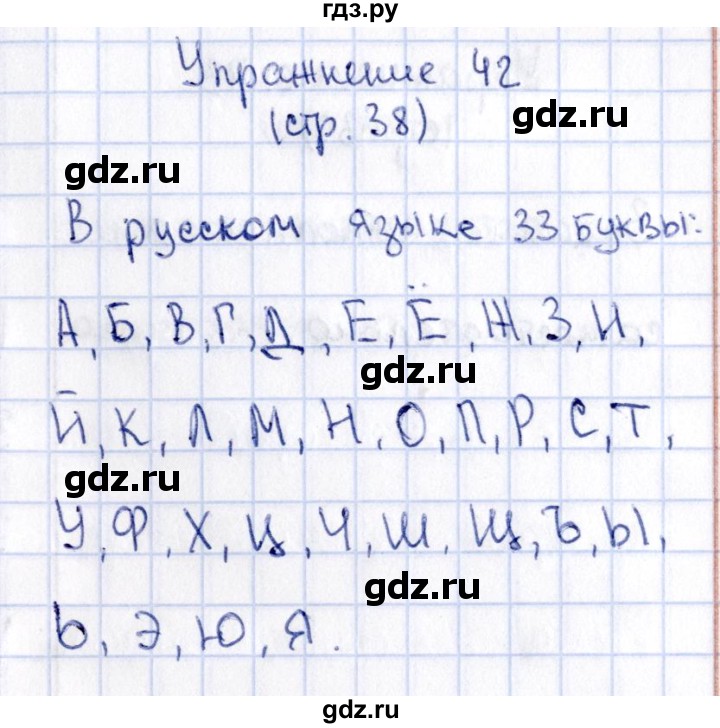 гдз.ру
Упражнение 42
(стр. 38)
gdz.ru
gdz.ru
В русском языке 33 буквы:
А, Б, В, Г, Д, Е, Ё, Ж, З, И,
gdz.ru
Й, К, Л, М, Н, О, П, Р, С, Т,
gdz.ru
У, Ф, Х, Ц, Ч, Ш, Щ, Ъ, Ы,
gdz.ru
Ь, Э, Ю, Я.
gdz.ru